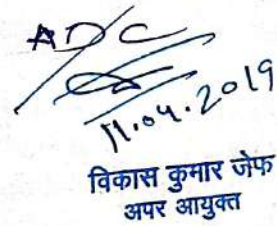 ADC
11.04.2019
विकास कुमार जेफ
अपर आयुक्त